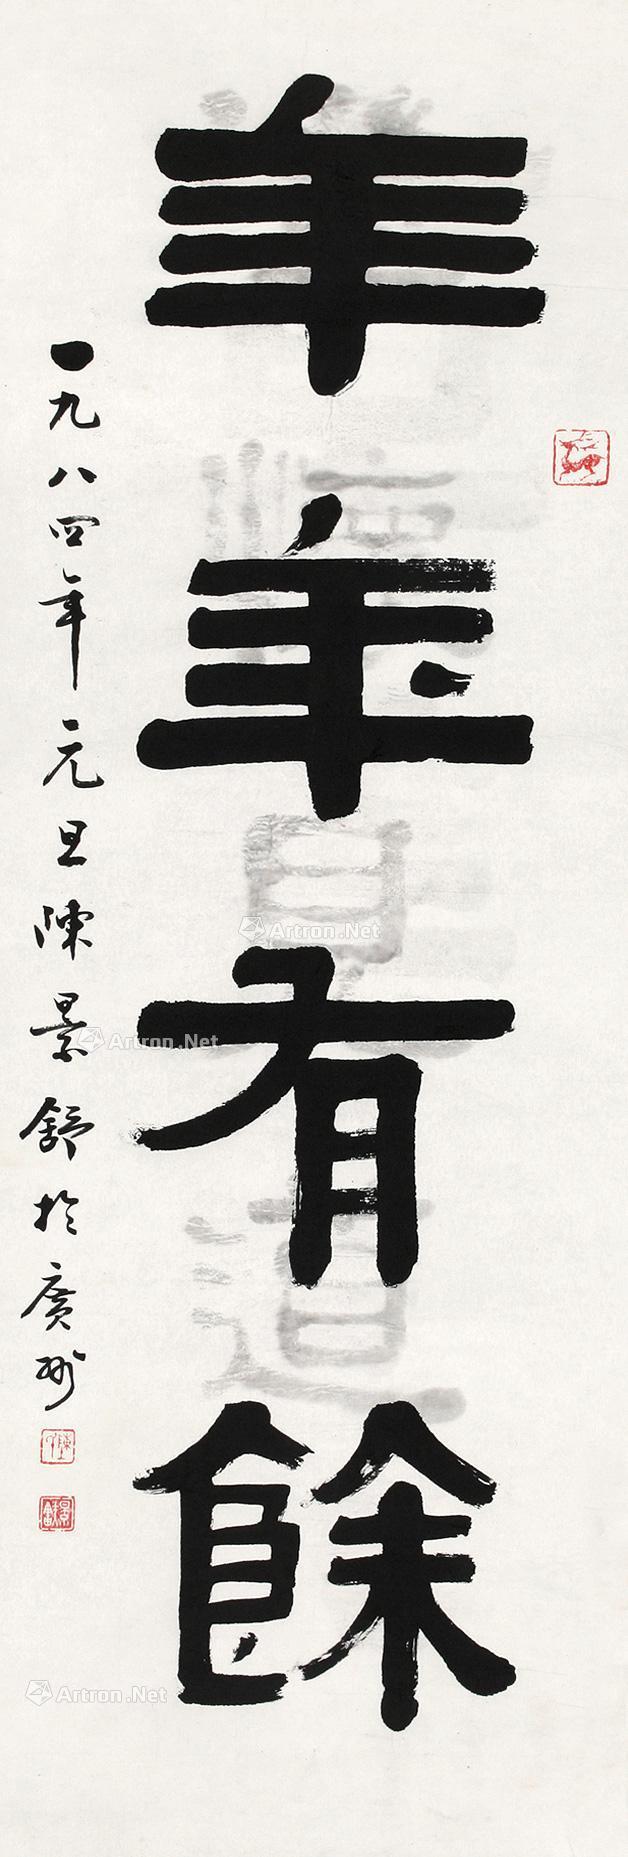 年年有餘
一九八四年元旦陳景舒於廣州
Artron.Net
Artron.Net
Artron.Net